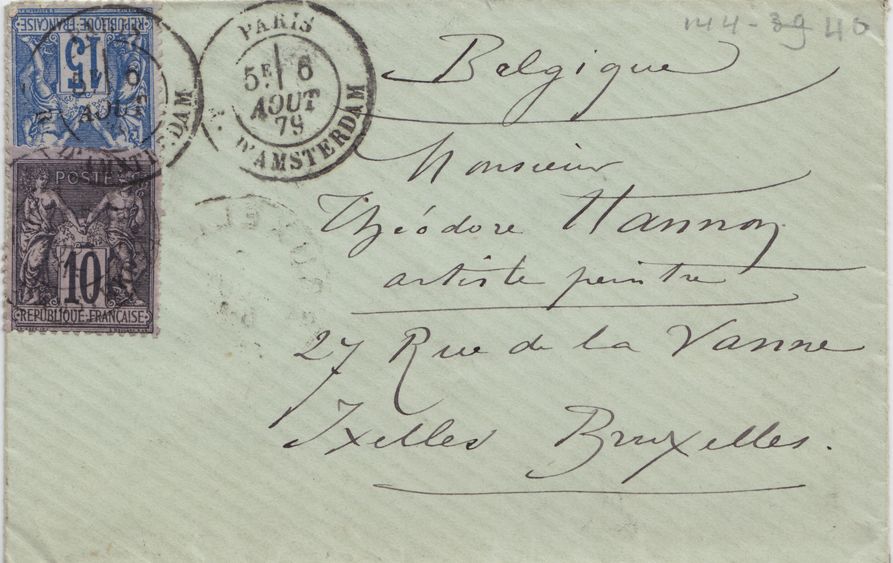 144-39 46
RÉPUBLIQUE FRANÇAISE
15
6
AOUT
D'AMSTERDAM
PARIS
5E 6
AOUT
79
R. D'AMSTERDAM
POSTES
10
RÉPUBLIQUE FRANÇAISE
Belgique
Monsieur
Théodore Hannon
artiste peintre
27 Rue de la Vanne
Ixelles Bruxelles.